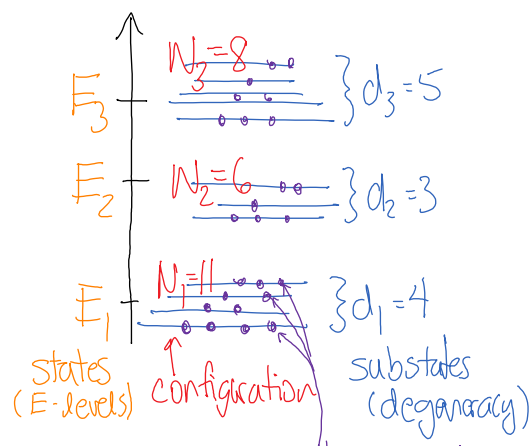 N₃=8
E₃
} d₃=5
N₂=6
E₂
} d₂=3
N₁=11
E₁
} d₁=4
states
(E-levels)
configuration
substates
(degeneracy)